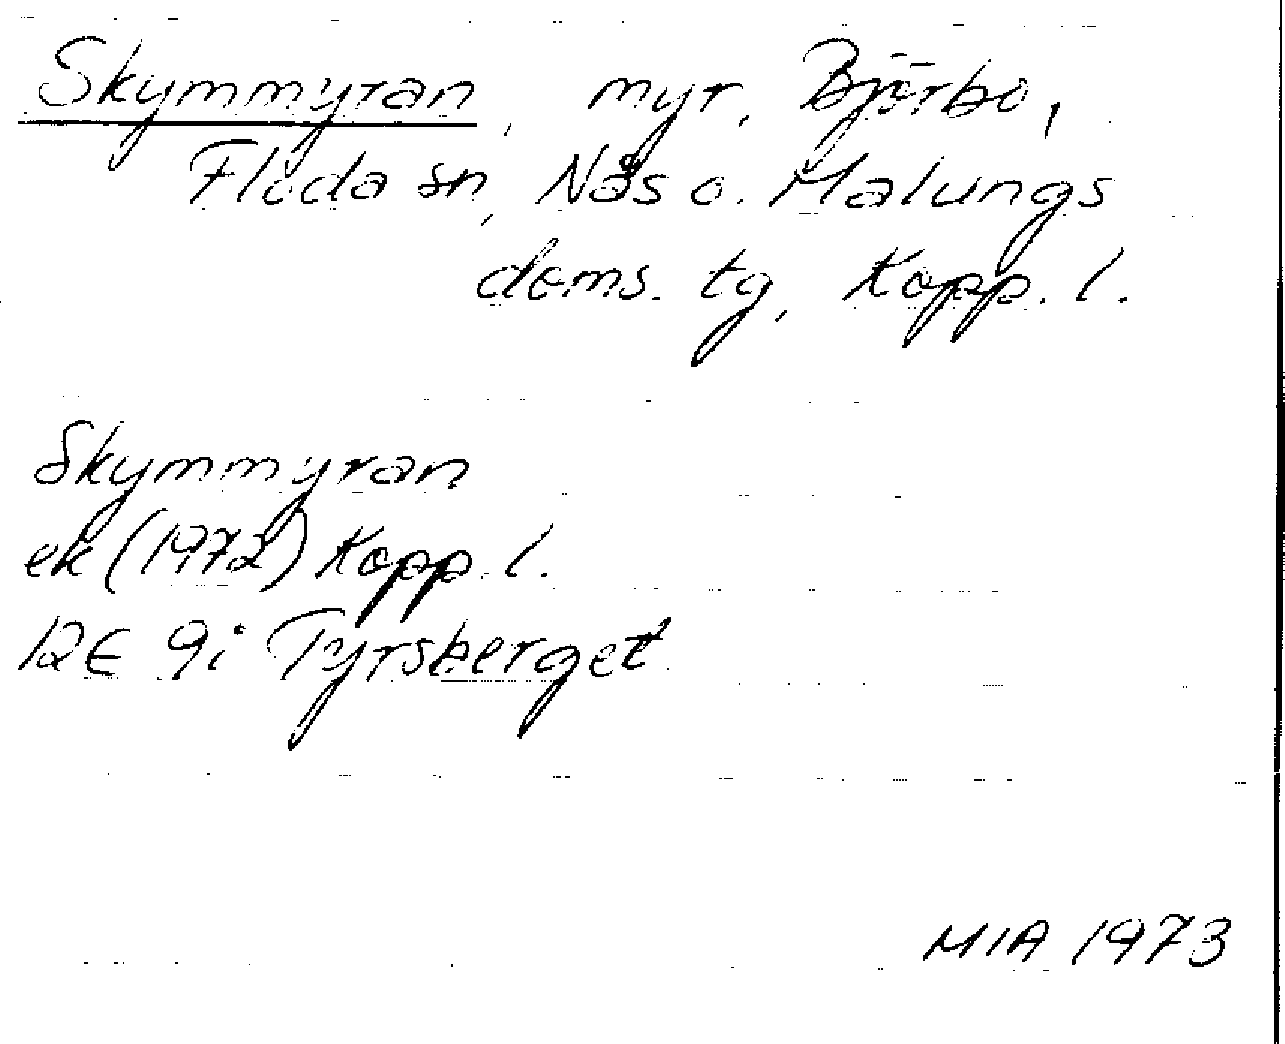 Skymmyran, myr, Björbo,
Floda sn, Nås o. Malungs
doms. tg, Kopp. l.
Skymmyran
ek (1972) Kopp. l.
12E 9i Tyrsberget
MIA 1973